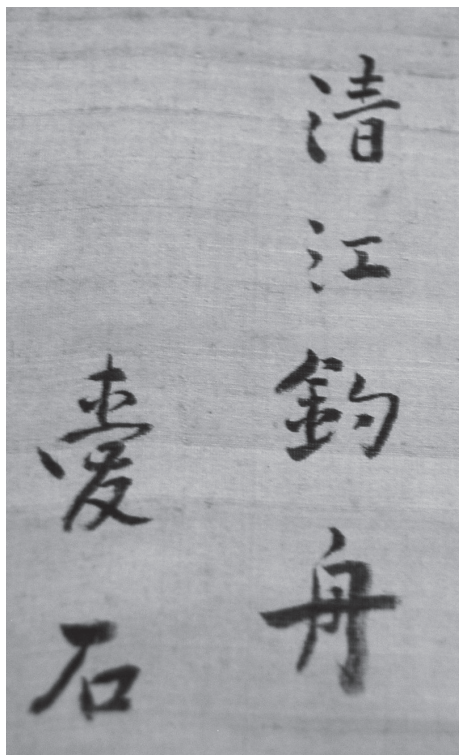 清江釣舟
愛石